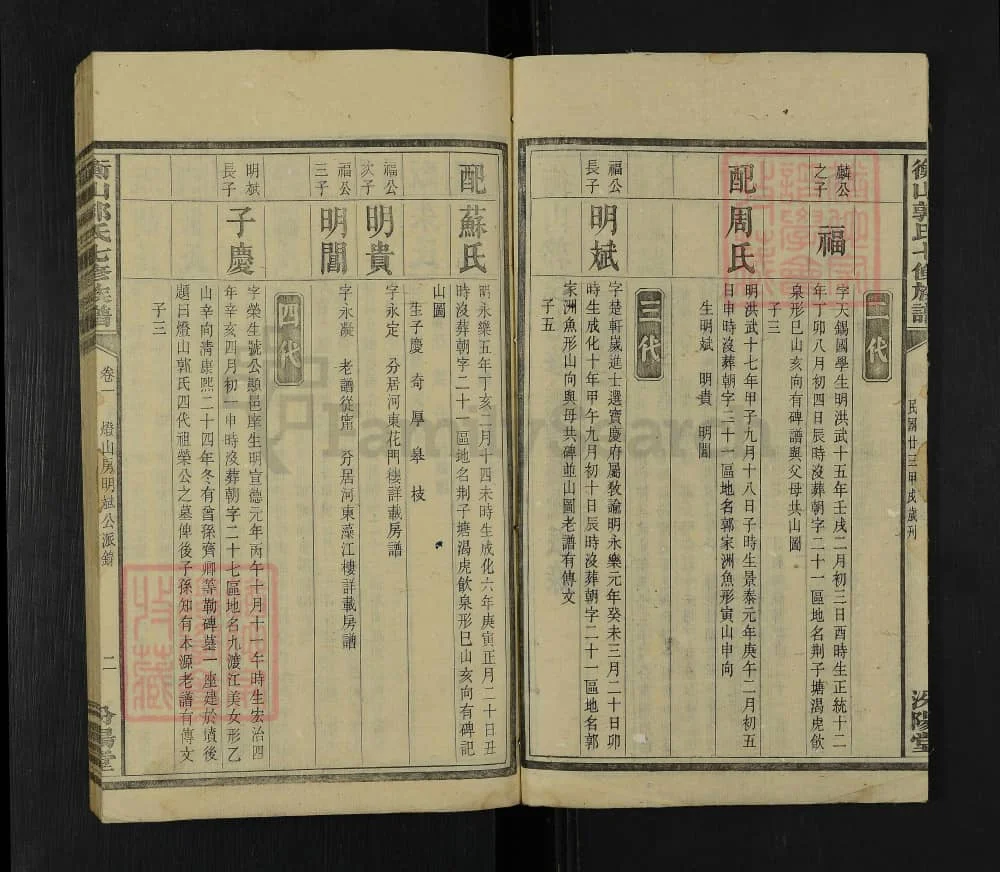 衡山郭氏七修族譜
民國廿三甲戌歲刊
汾陽堂
二代
麟公之子
福
字天錫國學生明洪武十五年壬戌二月初三日酉時生正統十二
年丁卯八月初四日辰時沒葬朝字二十一區地名荆子塘渴虎飲
泉形巳山亥向有碑譜與父母共山圖
子三
配周氏
明洪武十七年甲子九月十八日子時生景泰元年庚午二月初五
日申時沒葬朝字二十一區地名郭家洲魚形寅山申向
生明斌 明貴 明閶
三代
福公長子
明斌
字楚軒歲進士選寶慶府屬敎諭明永樂元年癸未三月二十日卯
時生成化十年甲午九月初十日辰時沒葬朝字二十一區地名郭
家洲魚形山向與母共碑並山圖老譜有傳文
子五
配蘇氏
明永樂五年丁亥二月十四未時生成化六年庚寅正月二十日丑
時沒葬朝字二十一區地名荆子塘渴虎飲泉形巳山亥向有碑記
山圖
生子慶 奇 厚 皋 枝
福公次子
明貴
字永定 分居河東花門樓詳載房譜
福公三子
明閶
字永凝 老譜從甯 分居河東藻江樓詳載房譜
四代
明斌長子
子慶
字榮生號公顯邑庠生明宣德元年丙午十月十一午時生宏治四
年辛亥四月初一申時沒葬朝字二十七區地名九渡江美女形乙
山辛向淸康熙二十四年冬有嗣孫齊卿等勒碑墓一座建於墳後
題曰燈山郭氏四代祖榮公之墓俾後子孫知有本源老譜有傳文
子三
衡山郭氏七修族譜
卷一
燈山房明斌公派
二
汾陽堂